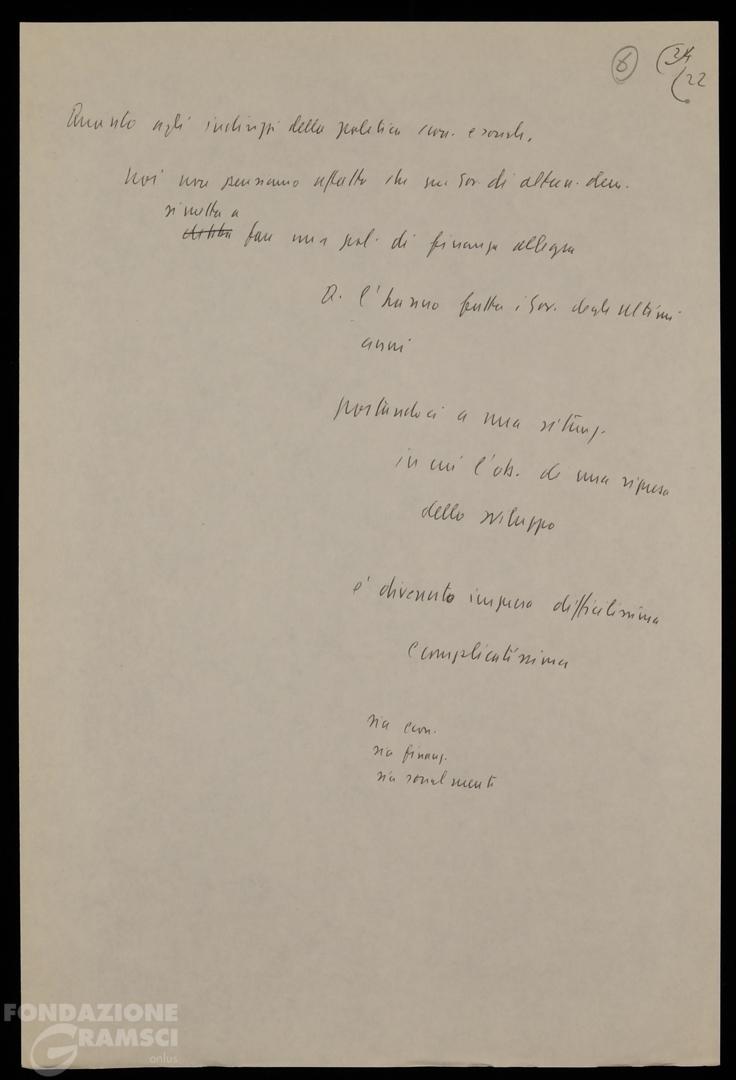 6 24
22
Quanto agli indirizzi della politica econ. e sociale,
noi non pensiamo affatto che un Gov. di altern. dem.
si metta a
debba fare una pol. di finanza allegra
Q. l'hanno fatta i Gov. degli ultimi
anni
portandoci a una situaz.
in cui l'ob. di una ripresa
dello sviluppo
è divenuto impresa difficilissima
e complicatissima
sia econ.
sia finanz.
sia socialmente
FONDAZIONE
GRAMSCI
onlus